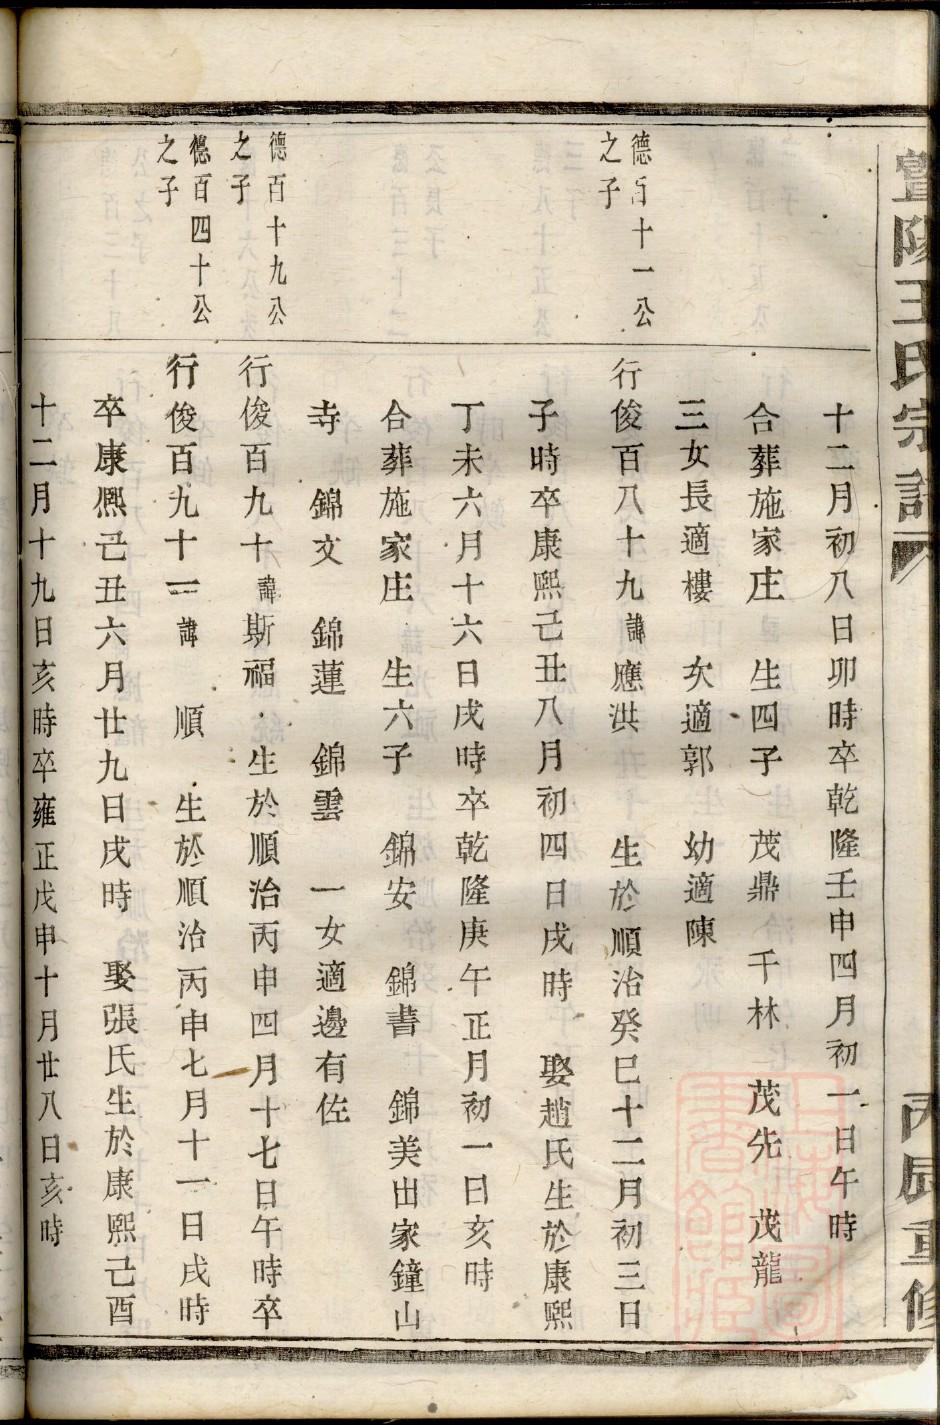 暨陽王氏宗譜
丙辰重修
十二月初八日卯時卒乾隆壬申四月初一日午時
合葬施家庄 生四子 茂鼎 千林 茂先 茂龍
三女長適樓 次適郭 幼適陳
德百十一公
之子
行俊百八十九諱應洪 生於順治癸巳十二月初三日
子時卒康熙己丑八月初四日戌時 娶趙氏生於康熙
丁未六月十六日戌時卒乾隆庚午正月初一日亥時
合葬施家庄 生六子 錦安 錦書 錦美出家鐘山
寺 錦文 錦蓮 錦雲 一女適邊有佐
德百十九公
之子
行俊百九十諱斯福 生於順治丙申四月十七日午時卒
德百四十公
之子
行俊百九十一諱 順 生於順治丙申七月十一日戌時
卒康熙己丑六月廿九日戌時 娶張氏生於康熙己酉
十二月十九日亥時卒雍正戊申十月廿八日亥時